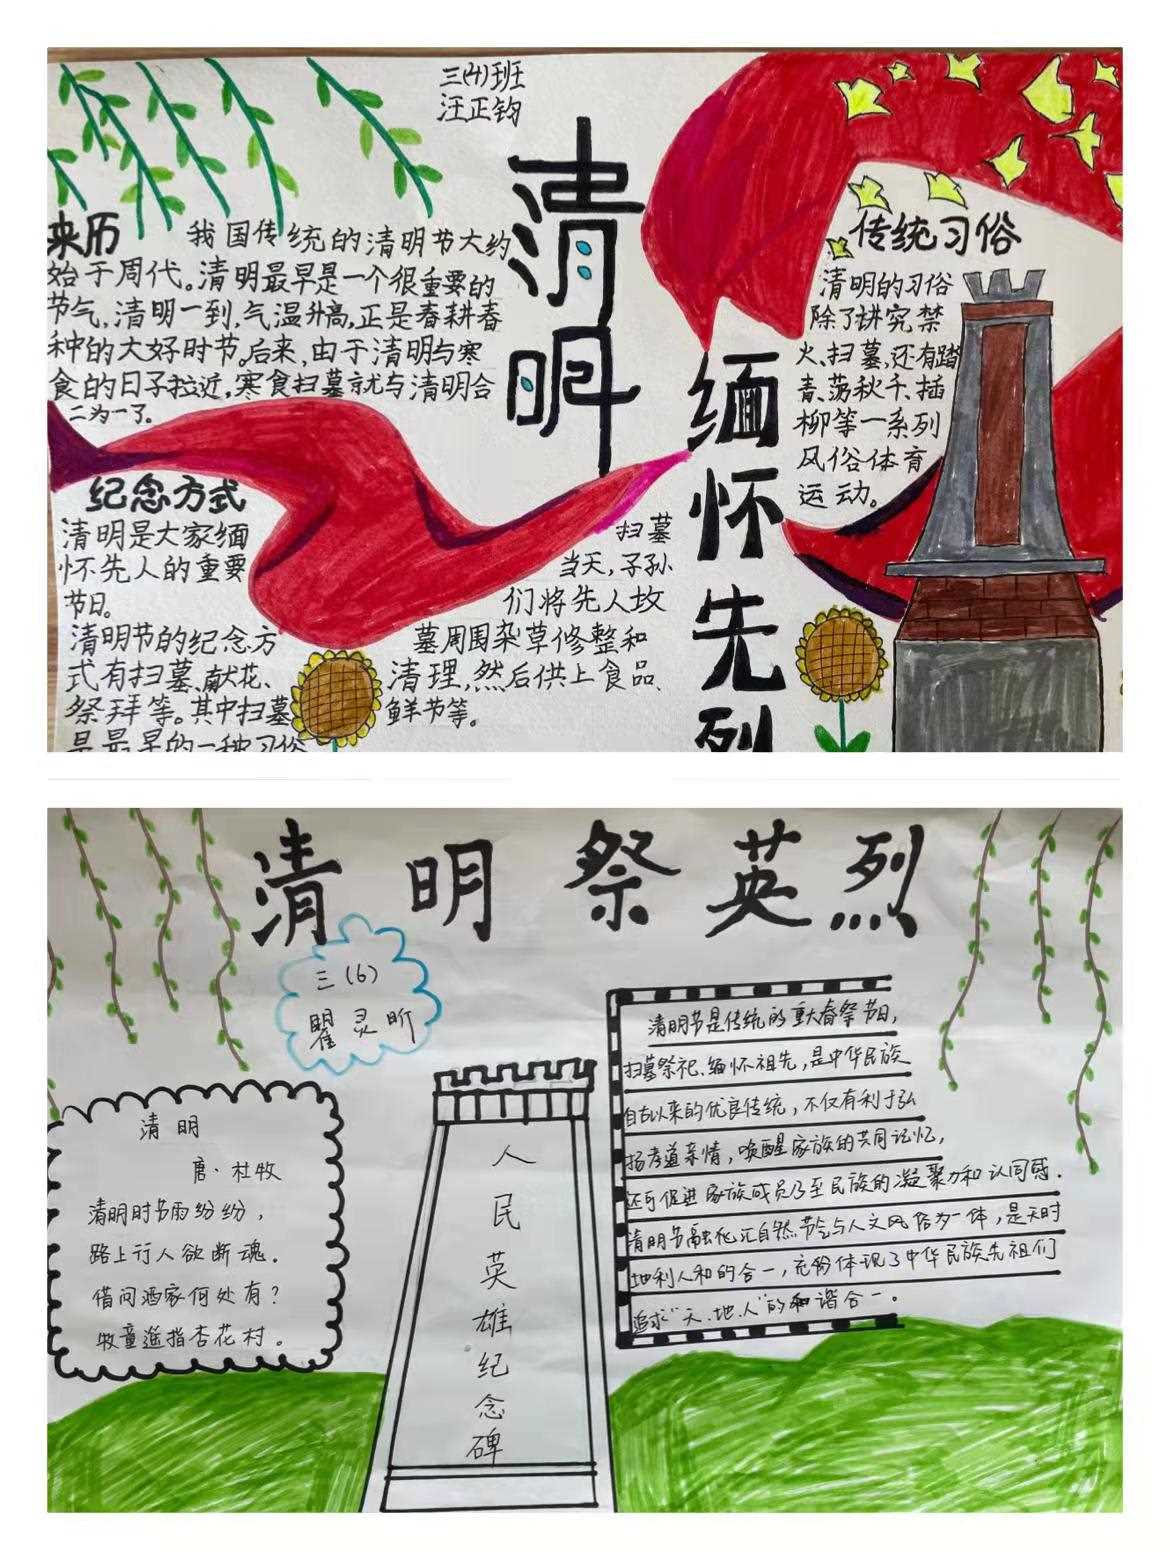 三(4)班
汪正钧
清明
缅怀先烈
来历
我国传统的清明节大约
始于周代。清明最早是一个很重要的
节气,清明一到,气温升高,正是春耕春
种的大好时节。后来,由于清明与寒
食的日子拉近,寒食扫墓就与清明合
二为一了。
纪念方式
清明是大家缅
怀先人的重要
节日。
清明节的纪念方
式有扫墓、献花、
祭拜等。其中扫墓
是最早的一种习俗
扫墓
当天,子孙
们将先人坟
墓周围杂草修整和
清理,然后供上食品、
鲜节等。
传统习俗
清明的习俗
除了讲究禁
火、扫墓,还有踏
青、荡秋千、插
柳等一系列
风俗体育
运动。
清明祭英烈
三(6)
瞿灵昕
清明
唐·杜牧
清明时节雨纷纷,
路上行人欲断魂。
借问酒家何处有?
牧童遥指杏花村。
人民英雄纪念碑
清明节是传统的重大春祭节日,
扫墓祭祀、缅怀祖先,是中华民族
自古以来的优良传统,不仅有利于弘
扬孝道亲情,唤醒家族的共同记忆,
还可促进家族成员乃至民族的凝聚力和认同感.
清明节融化汇自然节气与人文风俗为一体,是天时
地利人和的合一,充分体现了中华民族先祖们
追求"天、地、人"的和谐合一。